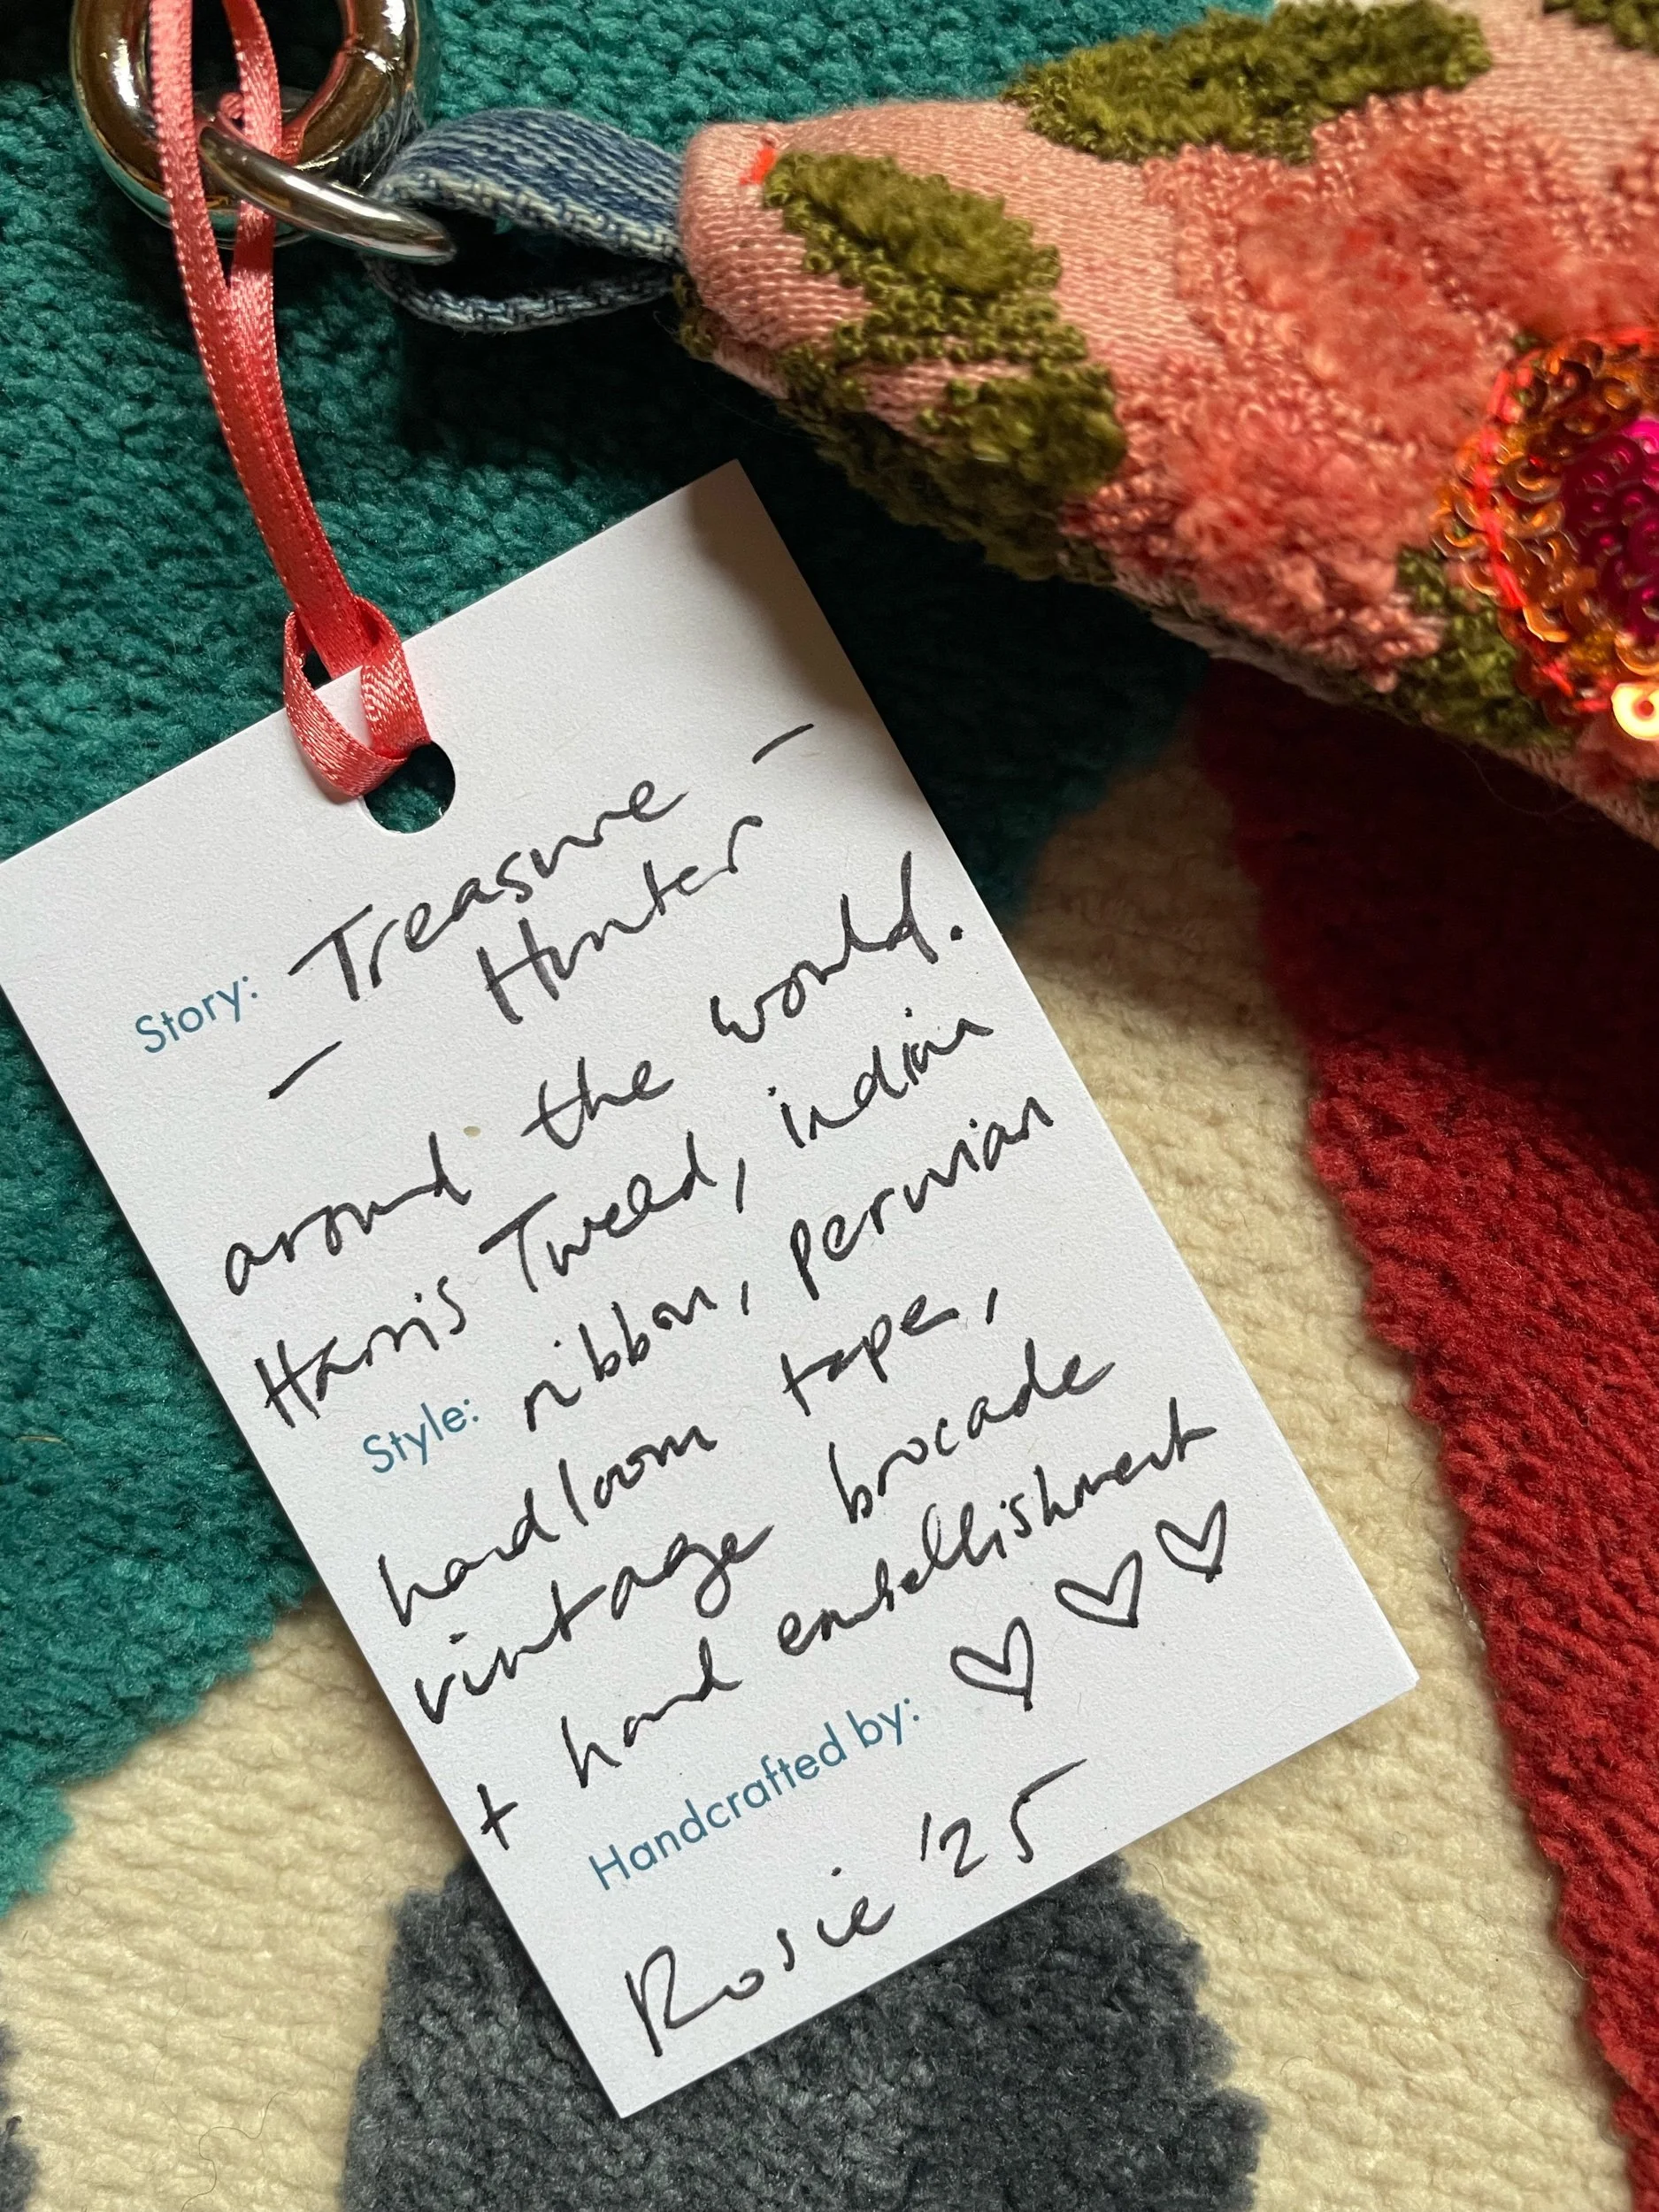 Story: Treasure
Hunter
— around the would. —
Harris Tweed, indian
Style: ribbon, peruvian
handloom tape,
vintage brocade
+ hand embellishment
Handcrafted by: ♡ ♡ ♡
Rosie '25